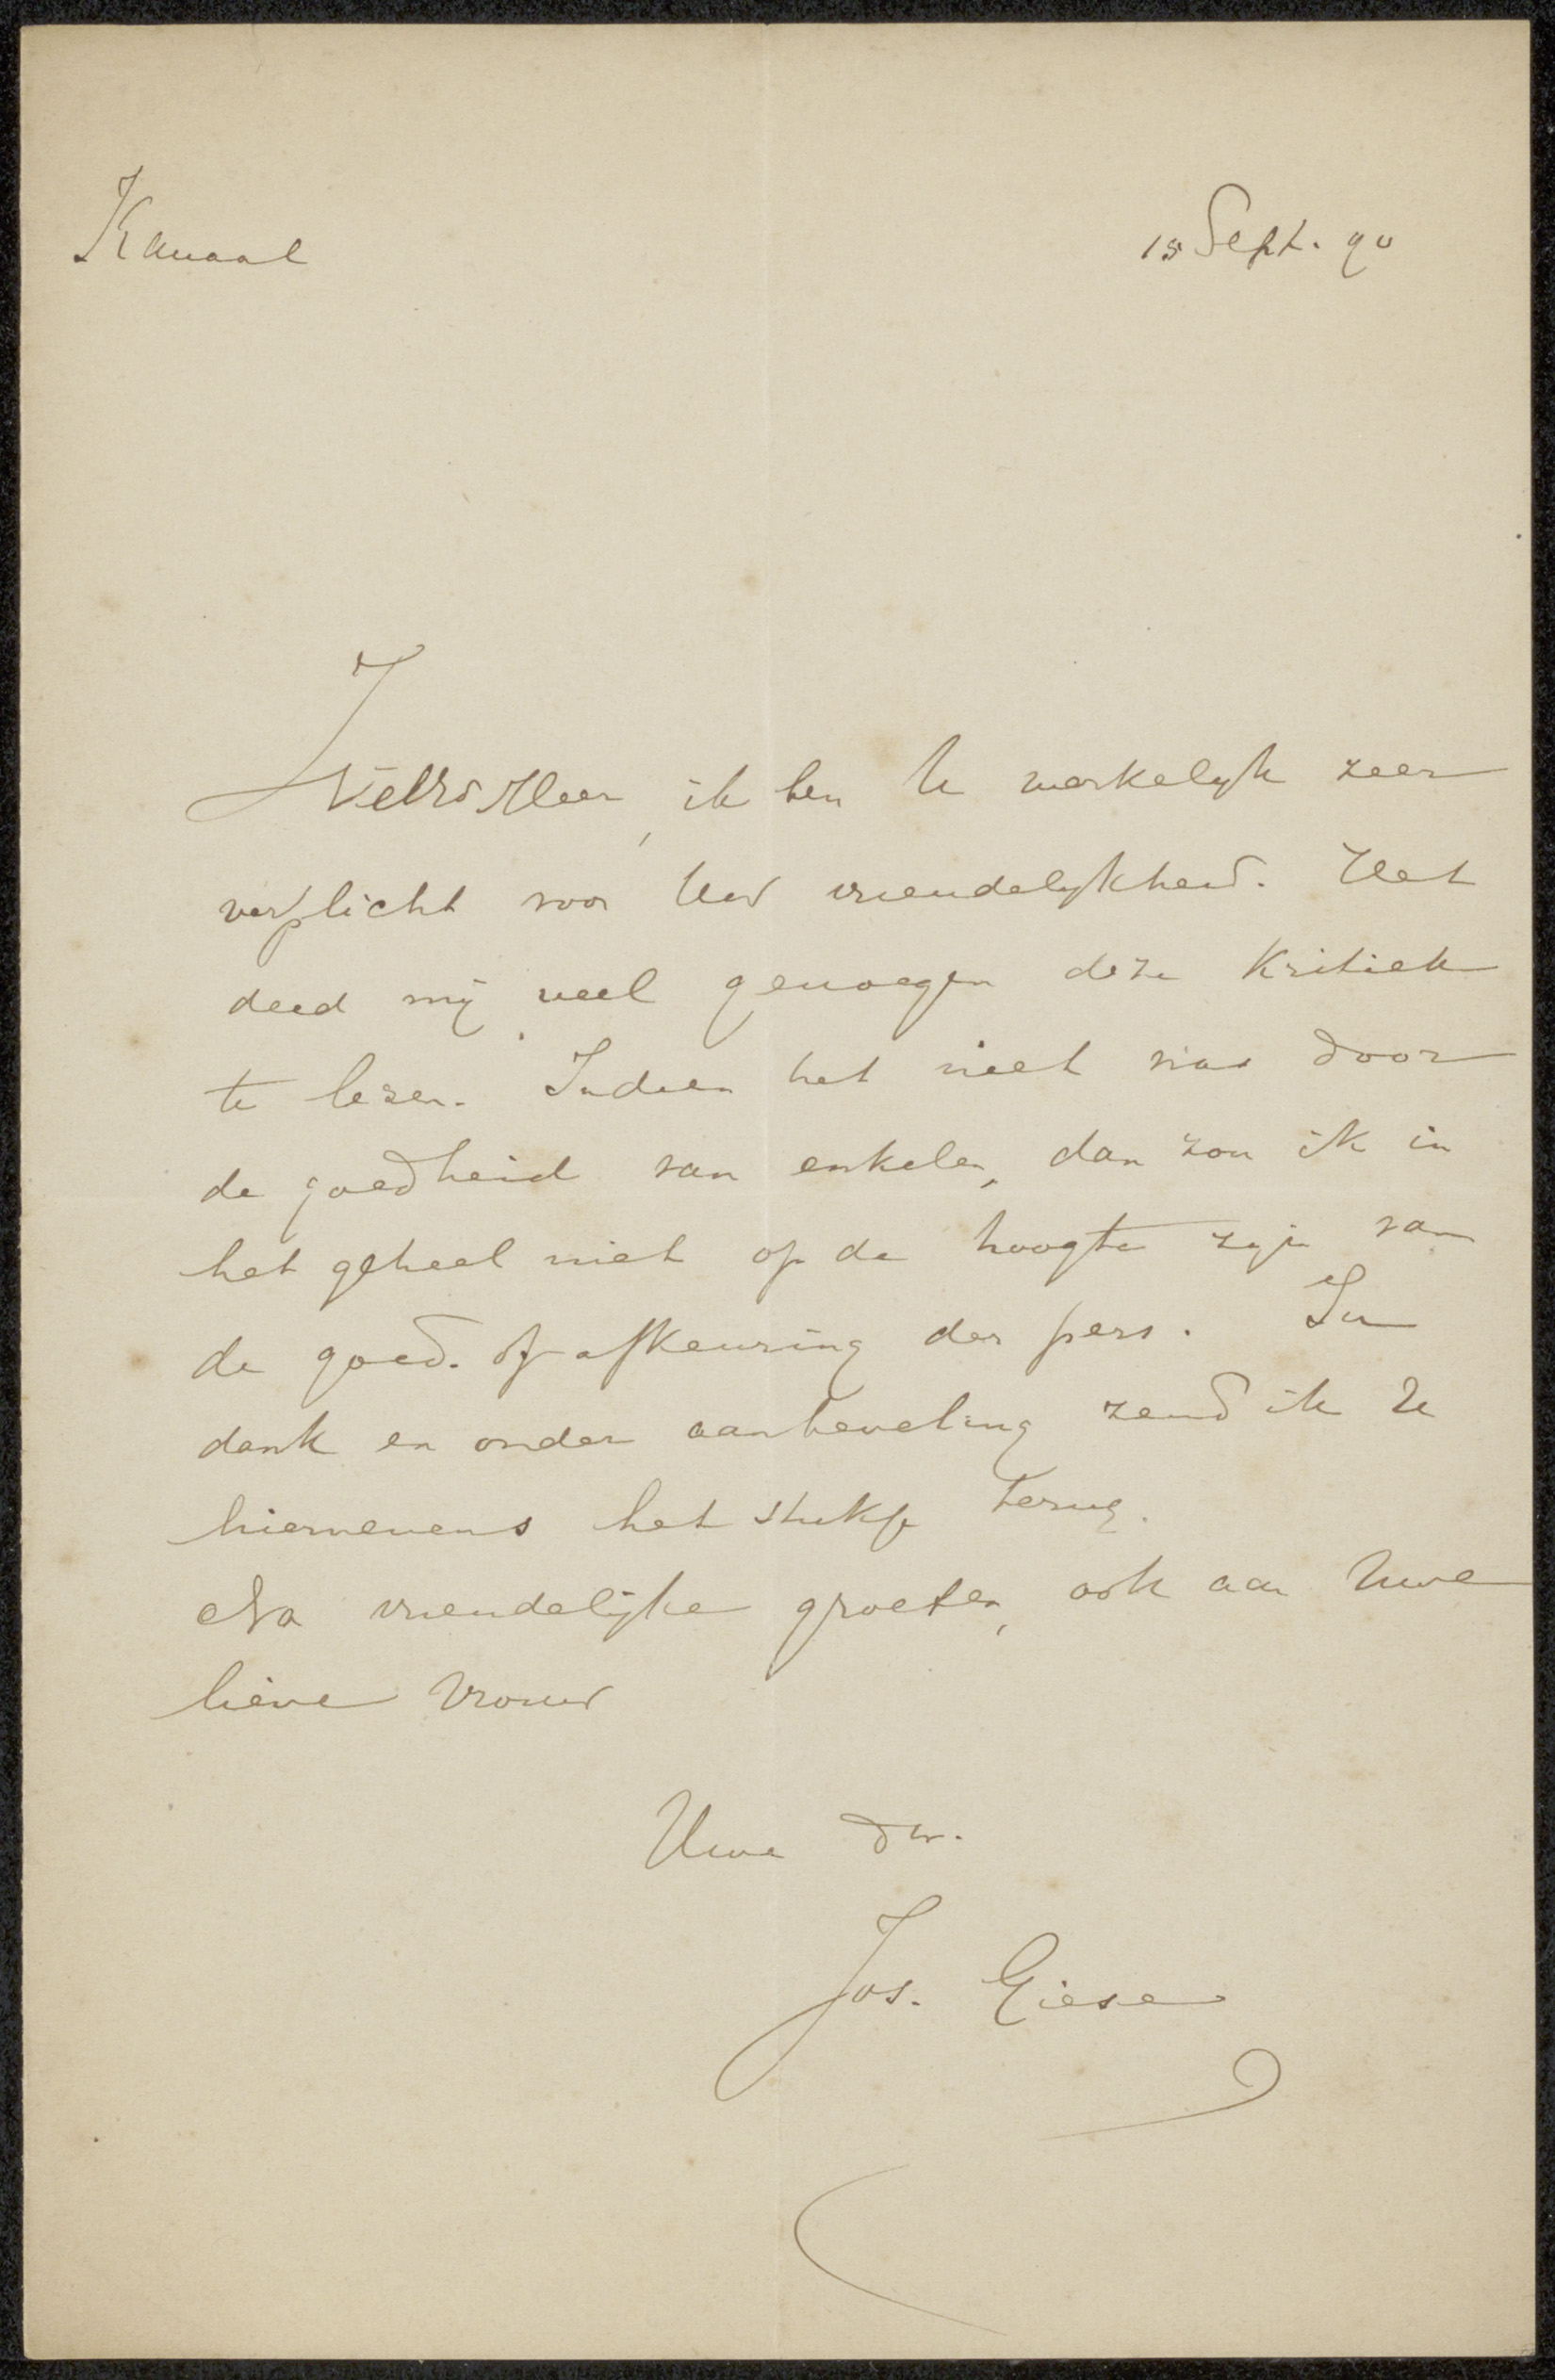 Kanaal
15 Sept. 90
WelEd Heer, ik ben U werkelijk zeer
verplicht voor Uw vriendelijkheid. Het
deed mij veel genoegen deze Kritiek
te lezen. Indien het niet was door
de goedheid van enkelen, dan zou ik in
het geheel niet op de hoogte zijn van
de goed. of afkeuring der pers. In
dank en onder aanbeveling zend ik U
hiernevens het stukje terug.
Na vriendelijke groeten, ook aan Uwe
lieve Vrouw
Uwe dw.
Jos. Giese